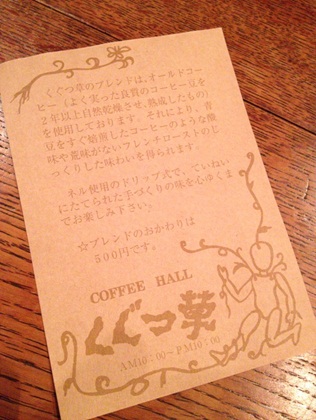 くぐつ草のブレンドは、オールドコー
ヒー（よく実った良質のコーヒー豆を
２年以上自然乾燥させ、熟成したもの）
を使用しております。それにより、青
豆をすぐ焙煎したコーヒーのような酸
味や荒味がないフレンチローストのじ
っくりした味わいを得られます。
ネル使用のドリップ式で、ていねい
にたてられた手づくりの味を心ゆくま
でお楽しみ下さい。
☆ブレンドのおかわりは
５００円です。
COFFEE HALL
くぐつ草
AM10:00－PM10:00